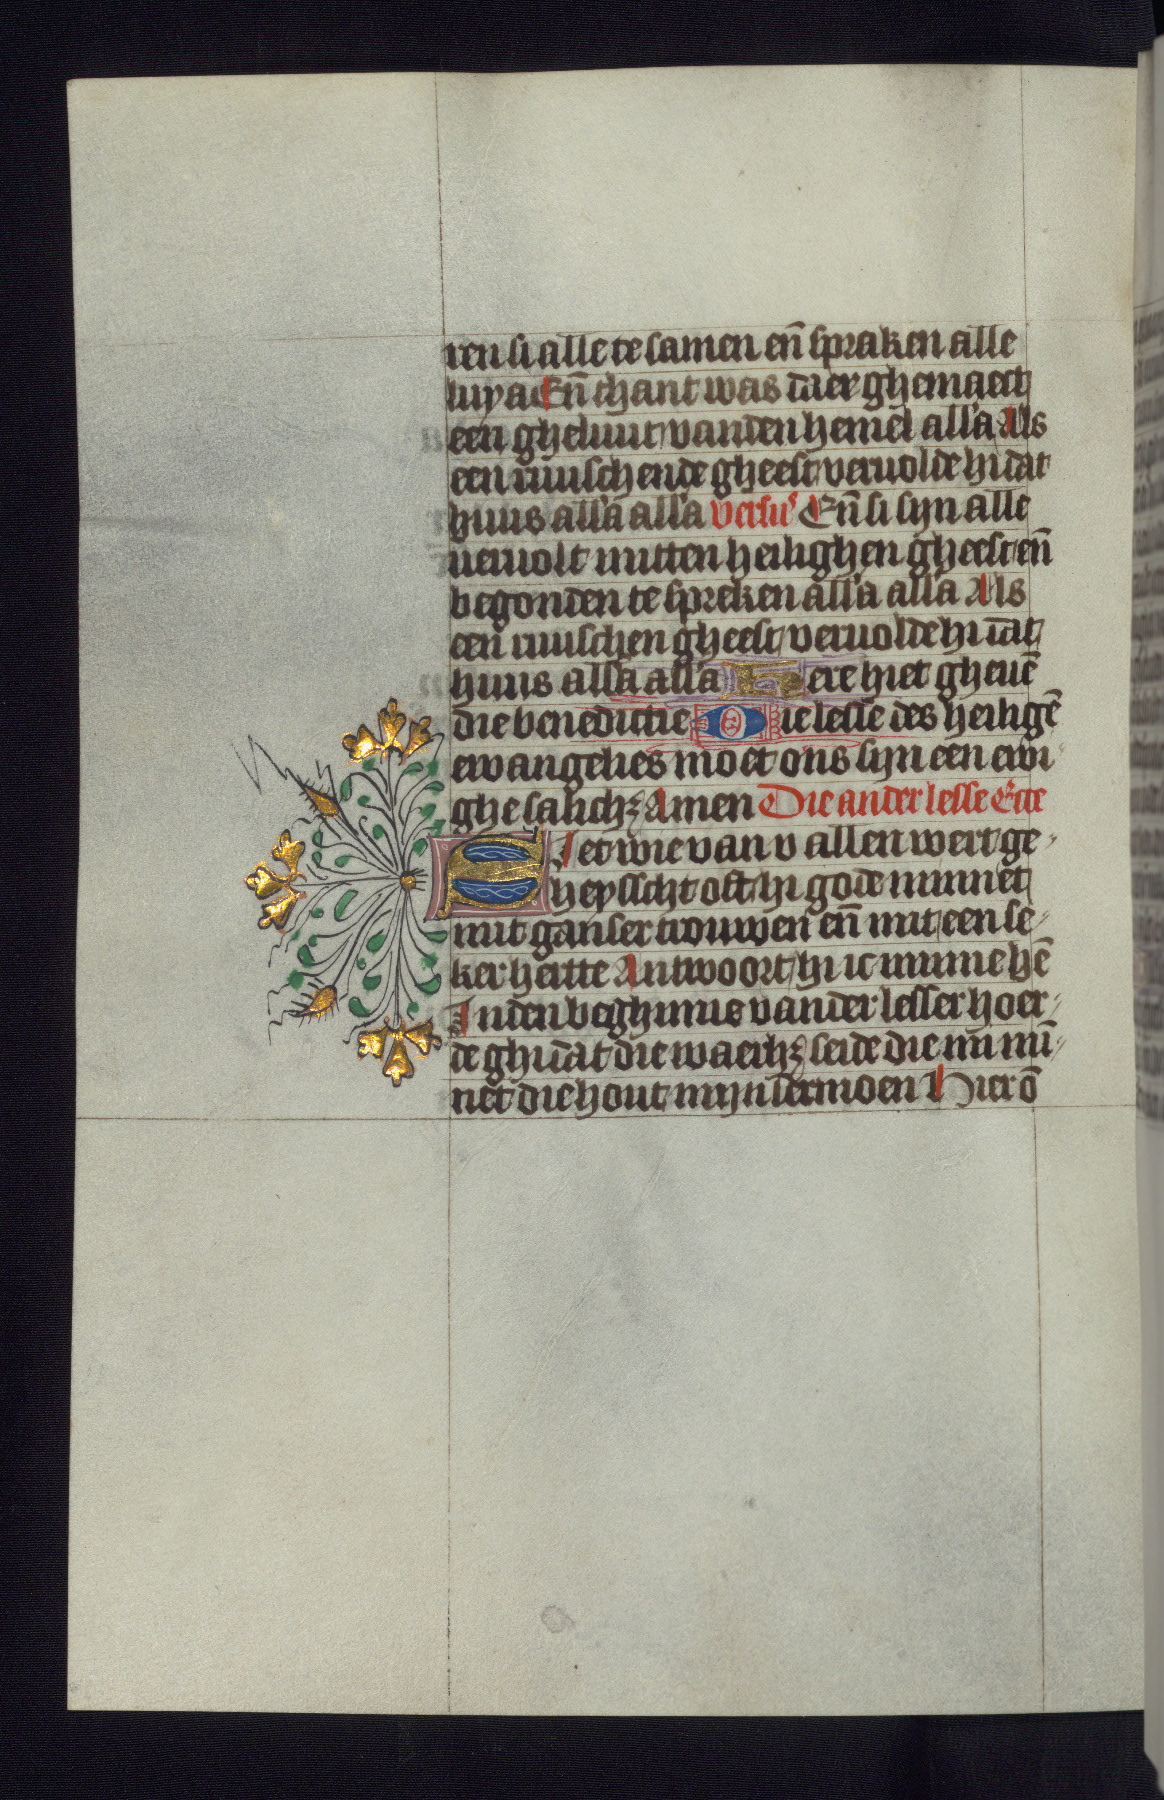 ren si alle te samen en̄ spraken alle
luya En̄ thant was daer ghemaect
een gheluut vanden hemel all'a Als
een ruuschende gheest veruolde hi dat
huus all'a all'a versus En̄ si sijn alle
veruolt mitten heilighen gheest en̄
begonden te spreken all'a all'a Als
een ruuschen gheest veruolde hi dat
huus all'a all'a Here hiet gheuē
die benedictie Die lesse des heiligē
ewangelies moet ons sijn een ewi
ghe salichz Amen Die ander lesse
Siet wie van v allen wert ge
heysscht oft hi gode minnet
mit ganser trouwen en̄ mit een se
ker hertte Antwoort hi ic minne hē
Inden beghinne vander lesser hoer
de ghi dat die waerhz seide die mi mī
net die hout mijn sermoen Hier ō